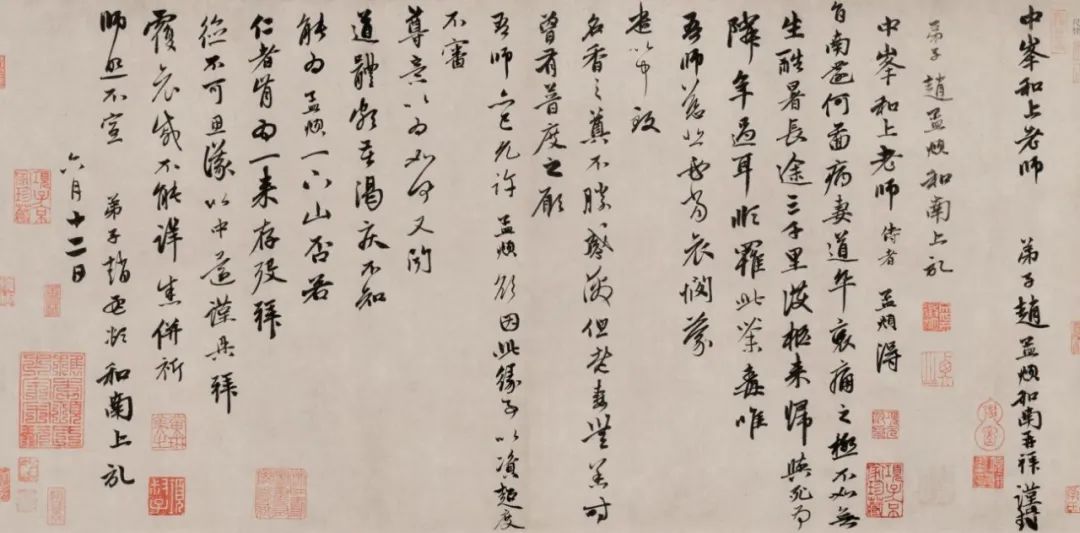 中峯和上老師 弟子趙孟頫和南再拜謹封
弟子趙孟頫和南上記
中峯和上老師 侍者 孟頫得
旨南還何啚病妻道卒哀痛之極不如無
生酷暑長途三千里護柩来歸與死為
隣年過耳順羅此荼毒唯
吾師慈悲必當哀憫蒙
遣以中致
名香之奠不勝感激但老妻無恙時
曾有普度之願
吾師亦已允許孟頫欲因此緣事以資超度
不審
尊意以為如何又聞
道體頗苦渴疾不知
能為孟頫一下山否若
仁者肯為一来存歿拜
德不可思議以中還謹具拜
覆哀感不能詳悉併祈
師照不宣 弟子趙孟頫和南上記
六月十二日